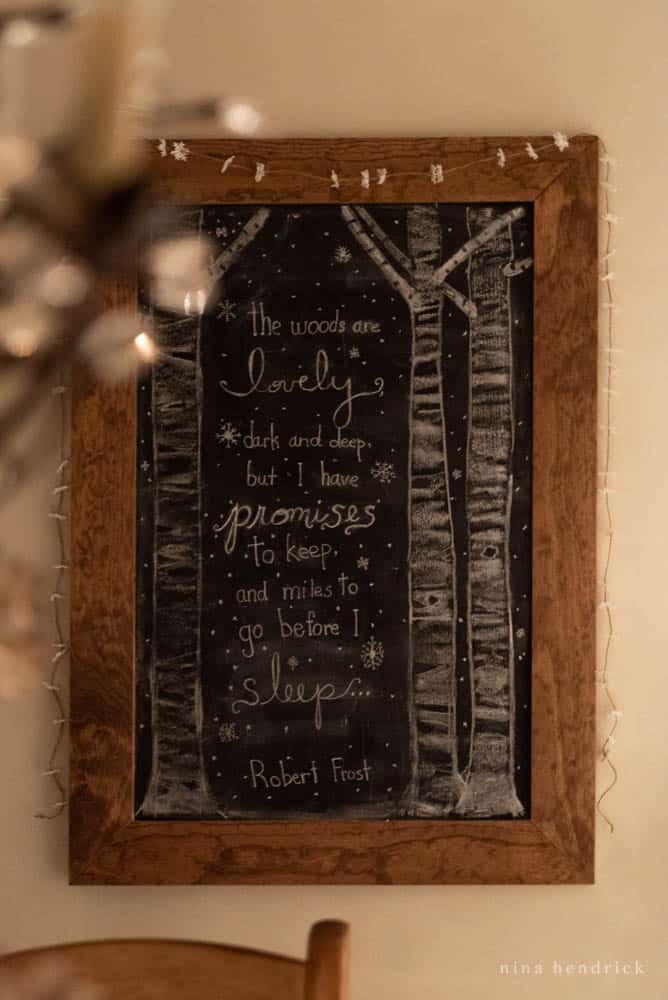 the woods are
lovely,
dark and deep,
but I have
promises
to keep,
and miles to
go before I
sleep...
Robert Frost
nina hendrick